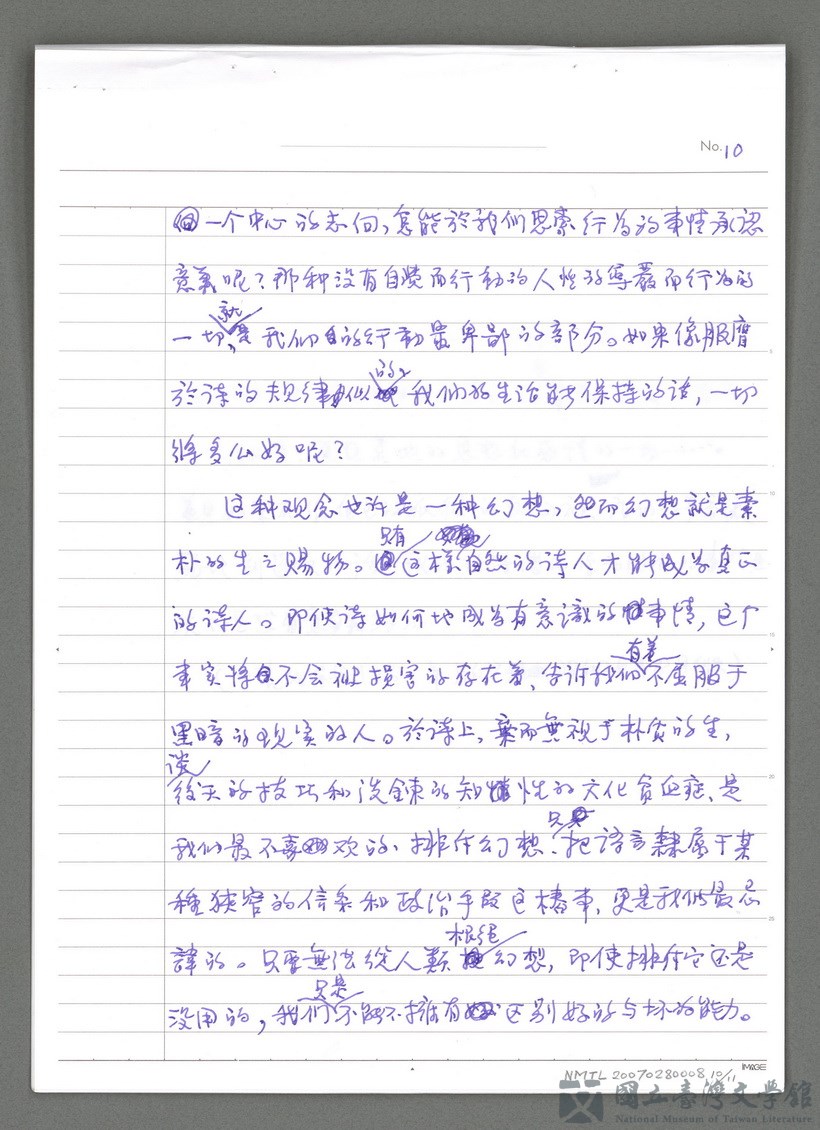 No. 10
一个中心的志向,怎能於我们思索行为的事情承認
意義呢?那种没有自覚而行動的人性的尊嚴而行为的
一切,就是我们的行動最卑鄙的部分。如果像服膺
於詩的規律似的,我们的生活能保持的話,一切
將多么好呢?
这种观念也许是一种幻想,然而幻想就是素
朴的生之賜物。只有这樣自然的诗人才能成为真正
的诗人。即使诗如何地成为有意識的事情,这个
事实将不会被損害的存在着,告诉我们有着不屈服于
黑暗的現实的人。於詩上,棄而無視于朴质的生,
谈後天的技巧和洗鍊的知性的文化貧血症,是
我们最不喜欢的。排斥幻想,只把语言隸属于某
種狭窄的信条和政治手段这樁事,更是我们最忌
諱的。只要無法從人類根绝幻想,即使排斥它还是
没用的,我们只是不能不擁有区别好的与坏的能力。
IMAGE
NMTL 20070280008 10/11
國立臺灣文學館
National Museum of Taiwan Literature